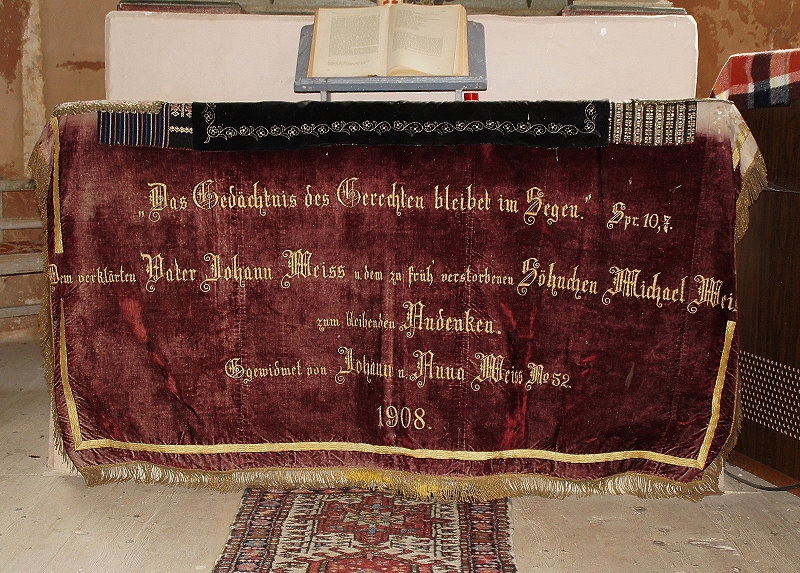 „Das Gedächtnis des Gerechten bleibet im Segen.“ Spr. 10,7.
Dem verklärten Vater Johann Weiss u. dem zu früh verstorbenen Söhnchen Michael Weis
zum bleibenden Andenken.
Ggewidmet von Johann u. Anna Weiss No 52.
1908.